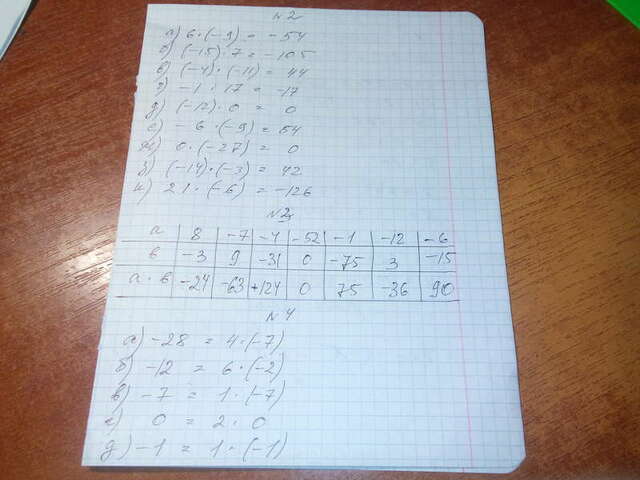 N2
а) 6·(-9) = -54
б) (-15)·7 = -105
в) (-4)·(-11) = 44
г) -1·17 = -17
д) (-12)·0 = 0
е) -6·(-9) = 54
ж) 0·(-27) = 0
з) (-14)·(-3) = 42
и) 21·(-6) = -126
N3
а 8 -7 -4 -52 -1 -12 -6
в -3 9 -31 0 -75 3 -15
а·в -24 -63 +124 0 75 -36 90
N4
а) -28 = 4·(-7)
б) -12 = 6·(-2)
в) -7 = 1·(-7)
г) 0 = 2·0
д) -1 = 1·(-1)